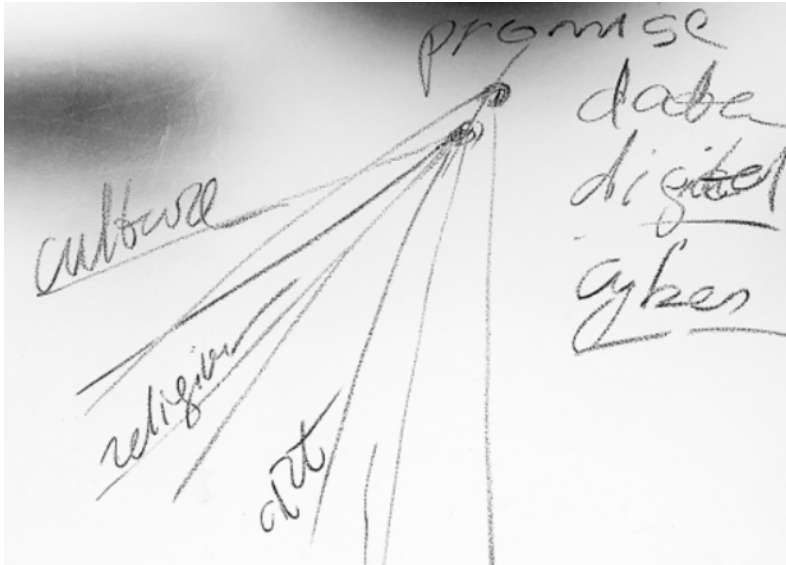 promise
data
digital
cyber
culture
religion
art